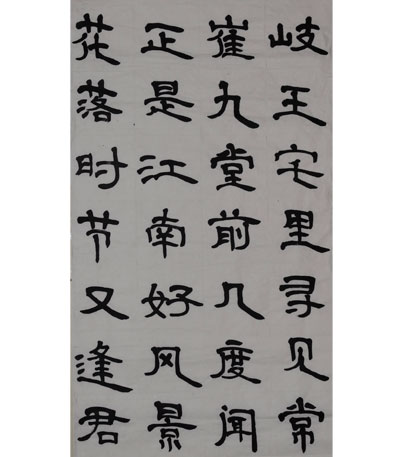 岐王宅里寻见常
崔九堂前几度闻
正是江南好风景
花落时节又逢君